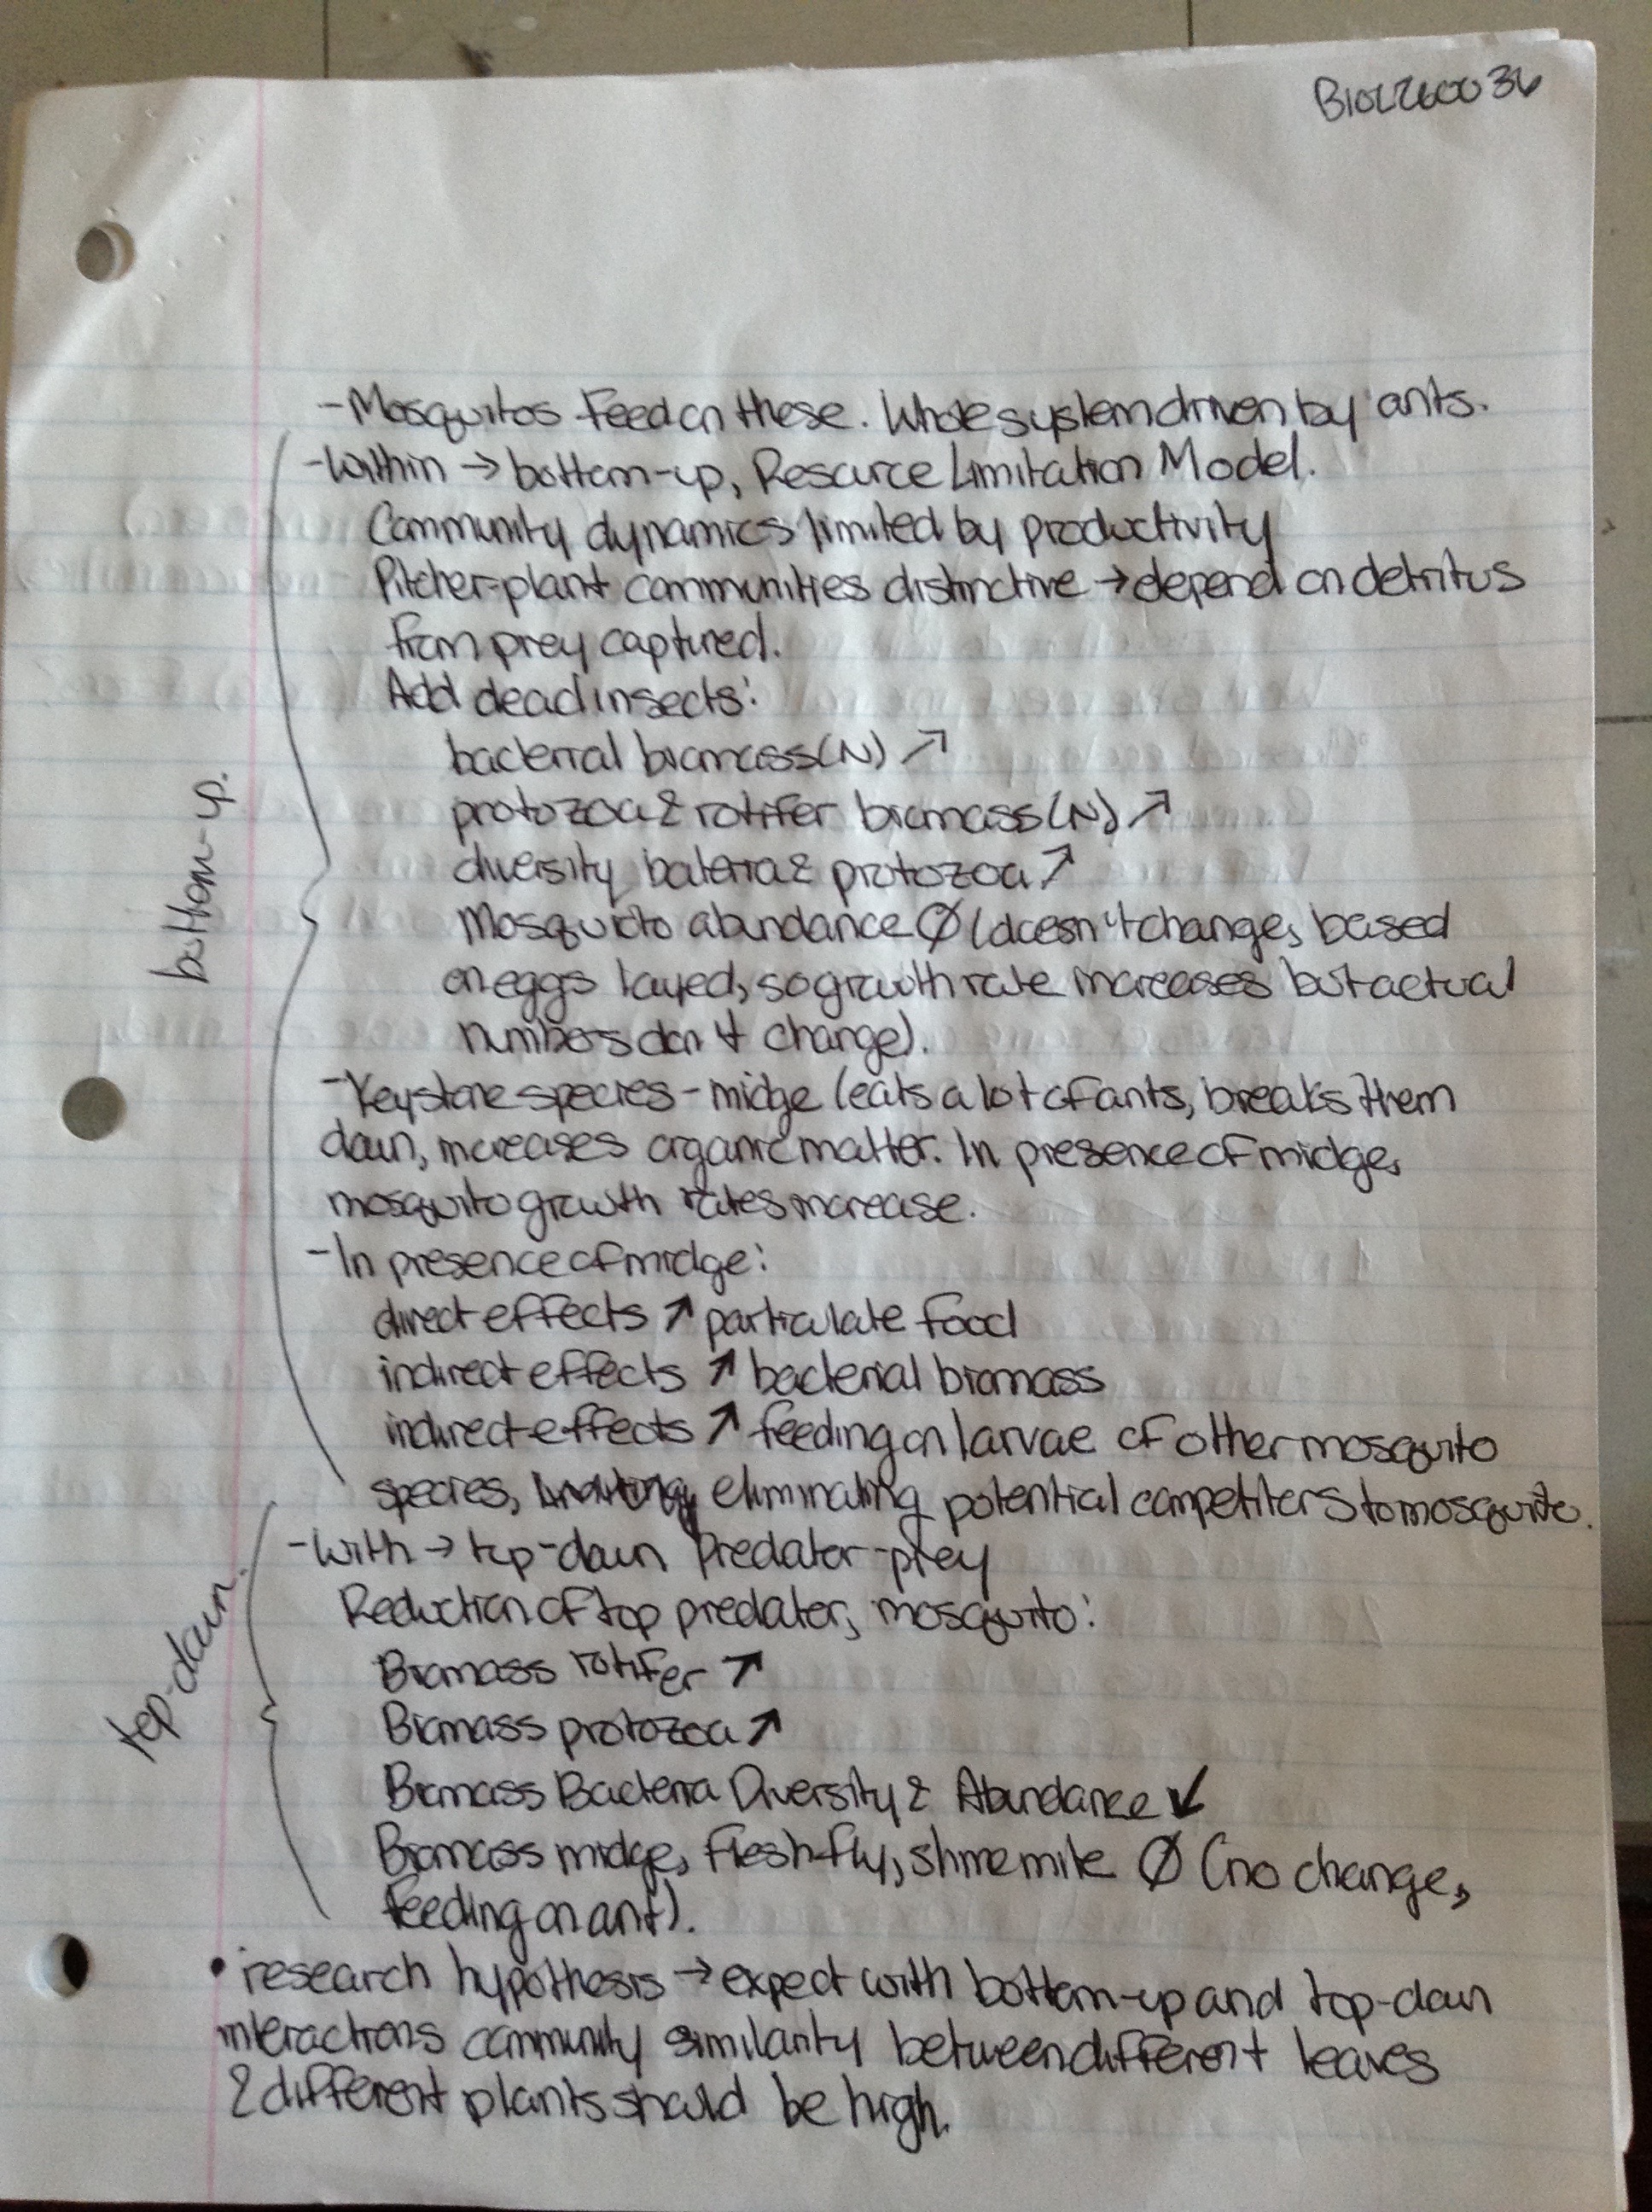 BIOL2600 36
-Mosquitos feed on these. Whole system driven by ants.
-Within → bottom-up, Resource Limitation Model.
Community dynamics limited by productivity
Pitcher-plant communities distinctive → depend on detritus
from prey captured.
Add dead insects:
bacterial biomass (N) ↗
protozoa & rotifer biomass (N) ↗
diversity bateria & protozoa ↗
bottom-up.
Mosquito abundance Ø (doesn't change, based
on eggs layed, so growth rate increases but actual
numbers don't change).
-Keystone species - midge (eats a lot of ants, breaks them
down, increases organic matter. In presence of midge,
mosquito growth rates increase.
-In presence of midge:
direct effects ↗ particulate food
indirect effects ↗ bacterial biomass
indirect effects ↗ feeding on larvae of other mosquito
species, eliminating potential competiters to mosquito.
-With → top-down Predator-prey
Reduction of top predator, mosquito:
top-down.
Biomass rotifer ↗
Biomass protozoa ↗
Biomass Bacteria Diversity & Abundance ↙
Biomass midge, flesh-fly, slime mite Ø (no change,
feeding on ant).
• research hypothesis → expect with bottom-up and top-down
interactions community similarity between different leaves
& different plants should be high.